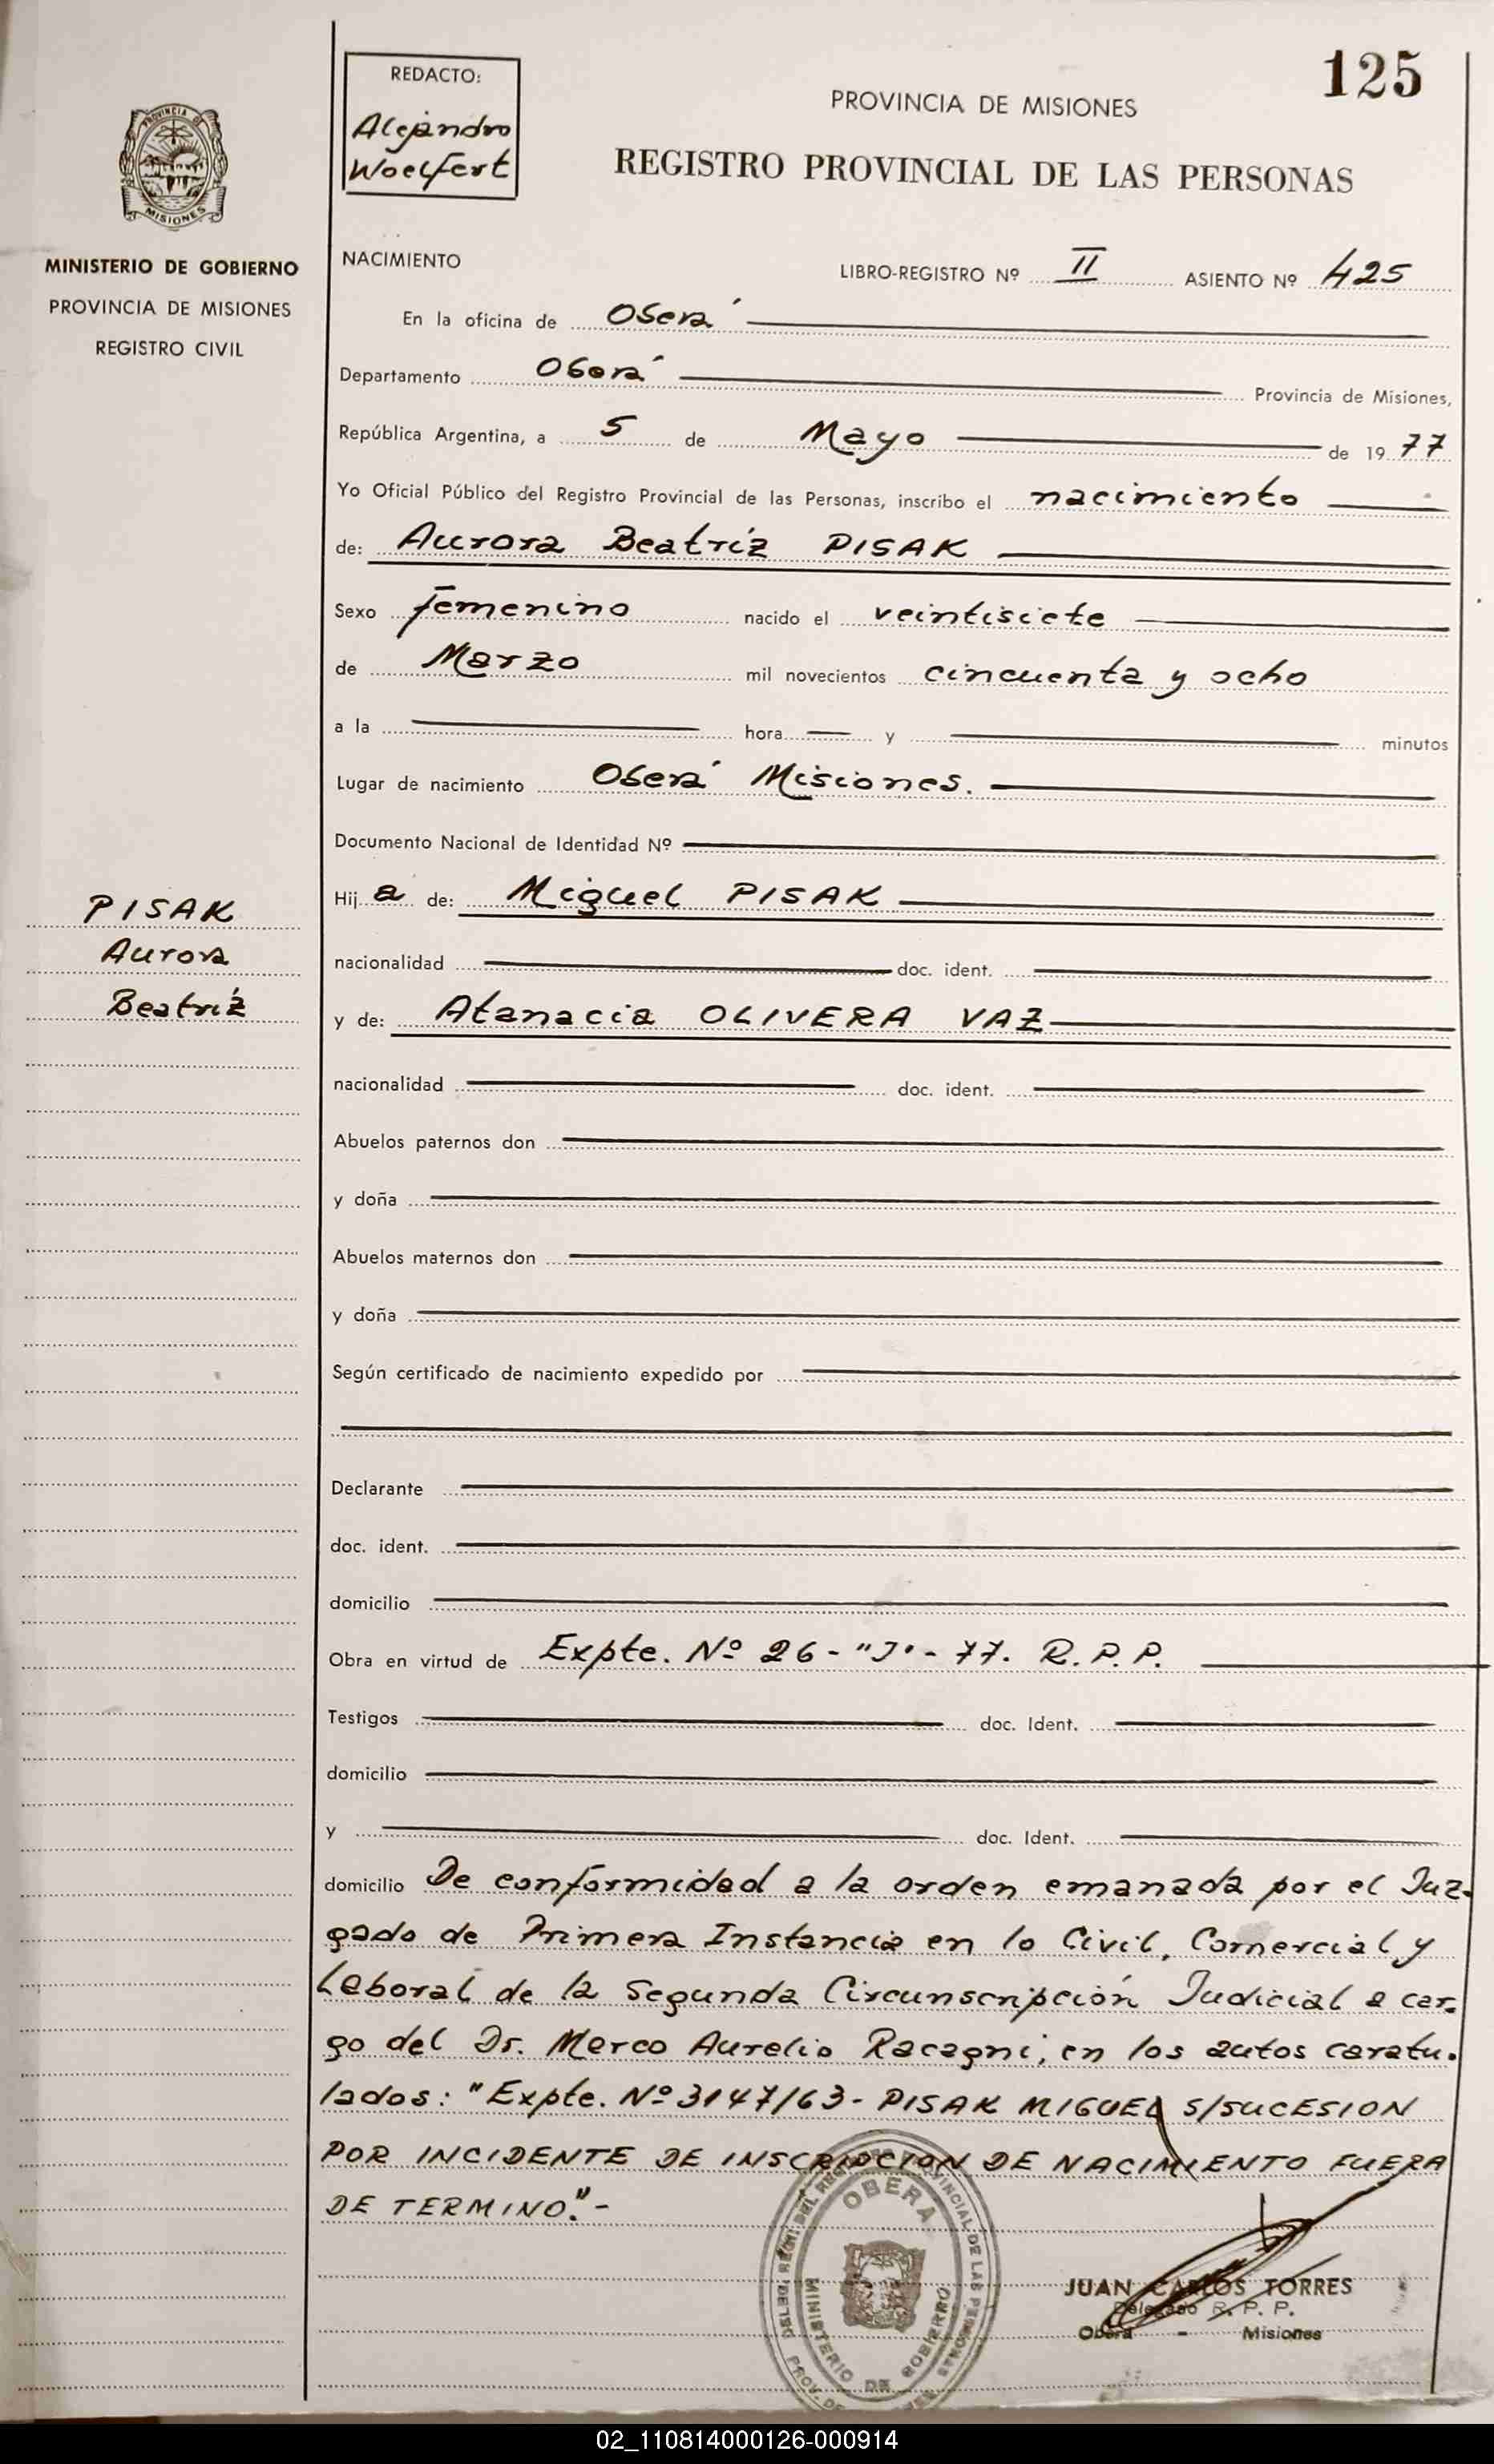 125
REDACTO:
Alejandro
Woelfert
PROVINCIA DE MISIONES
REGISTRO PROVINCIAL DE LAS PERSONAS
PROVINCIA DE
MISIONES
MINISTERIO DE GOBIERNO
PROVINCIA DE MISIONES
REGISTRO CIVIL
NACIMIENTO
LIBRO-REGISTRO Nº II ASIENTO Nº 425
En la oficina de Oberá
Departamento Oberá Provincia de Misiones,
República Argentina, a 5 de Mayo de 1977
Yo Oficial Público del Registro Provincial de las Personas, inscribo el nacimiento
de: Aurora Beatríz PISAK
Sexo femenino nacido el veintisiete
de Marzo mil novecientos cincuenta y ocho
a la hora y minutos
Lugar de nacimiento Oberá Misiones.
Documento Nacional de Identidad Nº
Hija de: Miguel PISAK
PISAK
Aurora
Beatríz
nacionalidad doc. ident.
y de: Atanacia OLIVERA VAZ
nacionalidad doc. ident.
Abuelos paternos don
y doña
Abuelos maternos don
y doña
Según certificado de nacimiento expedido por
Declarante
doc. ident.
domicilio
Obra en virtud de Expte. Nº 26-"J"-77. R.P.P.
Testigos doc. Ident.
domicilio
y doc. Ident.
domicilio De conformidad a la orden emanada por el Juz-
gado de Primera Instancia en lo Civil, Comercial y
Laboral de la Segunda Circunscripción Judicial a car-
go del Dr. Marco Aurelio Racagni, en los autos caratu-
lados: "Expte. Nº 3147/63- PISAK MIGUEL S/SUCESION
POR INCIDENTE DE INSCRIPCION DE NACIMIENTO FUERA
DE TERMINO."-
OBERA
MINISTERIO DE GOBIERNO
JUAN CARLOS TORRES
Delegado R. P. P.
Oberá - Misiones
02_110814000126-000914